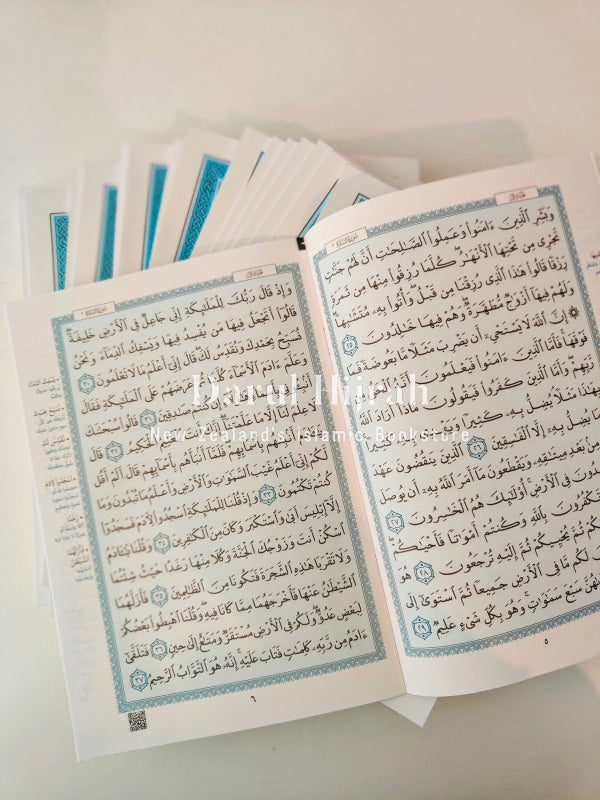 سُورَةُ البَقَرَةِ ٢
وَبَشِّرِ ٱلَّذِينَ ءَامَنُوا۟ وَعَمِلُوا۟ ٱلصَّٰلِحَٰتِ أَنَّ لَهُمْ جَنَّٰتٍ
تَجْرِى مِن تَحْتِهَا ٱلْأَنْهَٰرُ ۖ كُلَّمَا رُزِقُوا۟ مِنْهَا مِن ثَمَرَةٍ
رِّزْقًا ۙ قَالُوا۟ هَٰذَا ٱلَّذِى رُزِقْنَا مِن قَبْلُ ۖ وَأُتُوا۟ بِهِۦ مُتَشَٰبِهًا ۖ
وَلَهُمْ فِيهَآ أَزْوَٰجٌ مُّطَهَّرَةٌ ۖ وَهُمْ فِيهَا خَٰلِدُونَ ٢٥
۞ إِنَّ ٱللَّهَ لَا يَسْتَحْىِۦٓ أَن يَضْرِبَ مَثَلًا مَّا بَعُوضَةً فَمَا
فَوْقَهَا ۚ فَأَمَّا ٱلَّذِينَ ءَامَنُوا۟ فَيَعْلَمُونَ أَنَّهُ ٱلْحَقُّ
رَّبِّهِمْ ۖ وَأَمَّا ٱلَّذِينَ كَفَرُوا۟ فَيَقُولُونَ مَاذَآ أَرَادَ ٱللَّهُ
بِهَٰذَا مَثَلًا ۘ يُضِلُّ بِهِۦ كَثِيرًا وَيَهْدِى بِهِۦ كَثِيرًا ۚ
مَا يُضِلُّ بِهِۦٓ إِلَّا ٱلْفَٰسِقِينَ ٢٦ ٱلَّذِينَ يَنقُضُونَ عَهْدَ
مِنۢ بَعْدِ مِيثَٰقِهِۦ وَيَقْطَعُونَ مَآ أَمَرَ ٱللَّهُ بِهِۦٓ أَن يُوصَلَ
فِى ٱلْأَرْضِ ۚ أُو۟لَٰٓئِكَ هُمُ ٱلْخَٰسِرُونَ ٢٧
تَكْفُرُونَ بِٱللَّهِ وَكُنتُمْ أَمْوَٰتًا فَأَحْيَٰكُمْ ۖ
ثُمَّ يُحْيِيكُمْ ثُمَّ إِلَيْهِ تُرْجَعُونَ ٢٨ هُوَ
لَكُم مَّا فِى ٱلْأَرْضِ جَمِيعًا ثُمَّ ٱسْتَوَىٰٓ إِلَى
سَبْعَ سَمَٰوَٰتٍ ۚ وَهُوَ بِكُلِّ شَىْءٍ عَلِيمٌ ٢٩
٥
سُورَةُ البَقَرَةِ ٢
وَإِذْ قَالَ رَبُّكَ لِلْمَلَٰٓئِكَةِ إِنِّى جَاعِلٌ فِى ٱلْأَرْضِ خَلِيفَةً ۖ
قَالُوٓا۟ أَتَجْعَلُ فِيهَا مَن يُفْسِدُ فِيهَا وَيَسْفِكُ ٱلدِّمَآءَ وَنَحْنُ
نُسَبِّحُ بِحَمْدِكَ وَنُقَدِّسُ لَكَ ۖ قَالَ إِنِّىٓ أَعْلَمُ مَا لَا تَعْلَمُونَ ٣٠
وَعَلَّمَ ءَادَمَ ٱلْأَسْمَآءَ كُلَّهَا ثُمَّ عَرَضَهُمْ عَلَى ٱلْمَلَٰٓئِكَةِ فَقَالَ
أَنۢبِـُٔونِى بِأَسْمَآءِ هَٰٓؤُلَآءِ إِن كُنتُمْ صَٰدِقِينَ ٣١ قَالُوا۟ سُبْحَٰنَكَ
لَا عِلْمَ لَنَآ إِلَّا مَا عَلَّمْتَنَآ ۖ إِنَّكَ أَنتَ ٱلْعَلِيمُ ٱلْحَكِيمُ ٣٢ قَالَ
يَٰٓـَٔادَمُ أَنۢبِئْهُم بِأَسْمَآئِهِمْ ۖ فَلَمَّآ أَنۢبَأَهُم بِأَسْمَآئِهِمْ قَالَ أَلَمْ أَقُل
لَّكُمْ إِنِّىٓ أَعْلَمُ غَيْبَ ٱلسَّمَٰوَٰتِ وَٱلْأَرْضِ وَأَعْلَمُ مَا تُبْدُونَ وَمَا
كُنتُمْ تَكْتُمُونَ ٣٣ وَإِذْ قُلْنَا لِلْمَلَٰٓئِكَةِ ٱسْجُدُوا۟ لِـَٔادَمَ فَسَجَدُوٓا۟
إِلَّآ إِبْلِيسَ أَبَىٰ وَٱسْتَكْبَرَ وَكَانَ مِنَ ٱلْكَٰفِرِينَ ٣٤ وَقُلْنَا يَٰٓـَٔادَمُ
ٱسْكُنْ أَنتَ وَزَوْجُكَ ٱلْجَنَّةَ وَكُلَا مِنْهَا رَغَدًا حَيْثُ شِئْتُمَا
وَلَا تَقْرَبَا هَٰذِهِ ٱلشَّجَرَةَ فَتَكُونَا مِنَ ٱلظَّٰلِمِينَ ٣٥ فَأَزَلَّهُمَا
ٱلشَّيْطَٰنُ عَنْهَا فَأَخْرَجَهُمَا مِمَّا كَانَا فِيهِ ۖ وَقُلْنَا ٱهْبِطُوا۟ بَعْضُكُمْ
لِبَعْضٍ عَدُوٌّ ۖ وَلَكُمْ فِى ٱلْأَرْضِ مُسْتَقَرٌّ وَمَتَٰعٌ إِلَىٰ حِينٍ ٣٦ فَتَلَقَّىٰٓ
ءَادَمُ مِن رَّبِّهِۦ كَلِمَٰتٍ فَتَابَ عَلَيْهِ ۚ إِنَّهُۥ هُوَ ٱلتَّوَّابُ ٱلرَّحِيمُ ٣٧
٦
Darul Hijrah
New Zealand's Islamic Bookstore